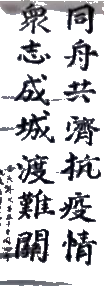 同舟共濟抗疫情
衆志成城渡難關